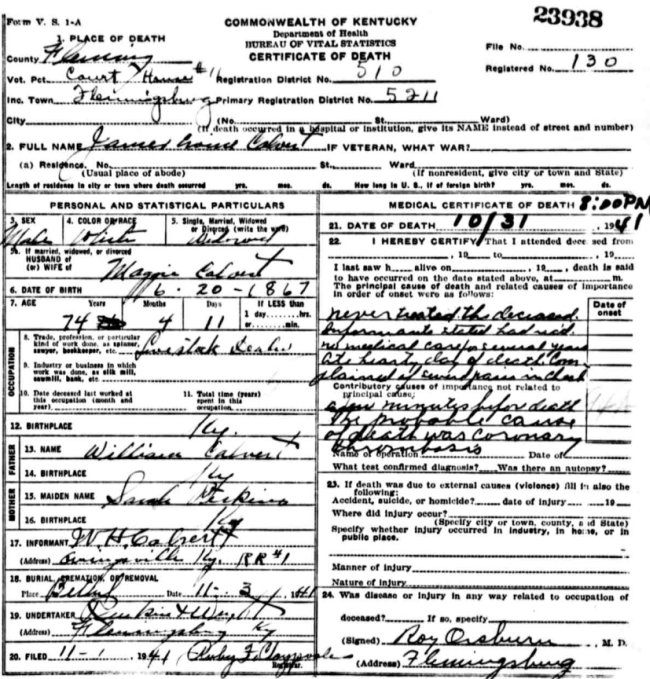 Form V. S. 1-A
COMMONWEALTH OF KENTUCKY
23938
Department of Health
BUREAU OF VITAL STATISTICS
CERTIFICATE OF DEATH
1. PLACE OF DEATH
File No.
County Fleming
Registered No. 130
Vot. Pct. Court House #1 Registration District No. 510
Inc. Town Flemingsburg Primary Registration District No. 5211
City (No. St. Ward)
(If death occurred in a hospital or institution, give its NAME instead of street and number)
2. FULL NAME James Calvert IF VETERAN, WHAT WAR?
(a) Residence, No. St., Ward
(Usual place of abode) (If nonresident, give city or town and State)
Length of residence in city or town where death occurred yrs. mos. ds. How long in U. S., if of foreign birth? yrs. mos. ds.
PERSONAL AND STATISTICAL PARTICULARS
3. SEX Male
4. COLOR OR RACE White
5. Single, Married, Widowed or Divorced (write the word) Widowed
5a. If married, widowed, or divorced
HUSBAND of
(or) WIFE of Maggie Calvert
6. DATE OF BIRTH 6-20-1867
7. AGE Years Months Days If LESS than
1 day, hrs.
or min.
74 4 11
OCCUPATION
8. Trade, profession, or particular
kind of work done, as spinner,
sawyer, bookkeeper, etc. Livestock Dealer
9. Industry or business in which
work was done, as silk mill,
sawmill, bank, etc.
10. Date deceased last worked at
this occupation (month and
year)
11. Total time (years)
spent in this
occupation.
12. BIRTHPLACE Ky.
FATHER
13. NAME William Calvert
14. BIRTHPLACE Ky
MOTHER
15. MAIDEN NAME Sarah
16. BIRTHPLACE Ky
17. INFORMANT W. H. Calvert
(Address) Owingsville Ky. RR#1
18. BURIAL, CREMATION, OR REMOVAL
Place Date 11-3, 1941
19. UNDERTAKER
(Address) Flemingsburg Ky
20. FILED 11-1 1941 Ruby F. Claypoole
Registrar.
MEDICAL CERTIFICATE OF DEATH 8:00 PM
21. DATE OF DEATH 10/31, 1941
22. I HEREBY CERTIFY, That I attended deceased from
, 19 to , 19
I last saw h alive on , 19 , death is said
to have occurred on the date stated above, at m.
The principal cause of death and related causes of importance
in order of onset were as follows:
Date of
onset
never treated the deceased.
Informants stated had rec'd
no medical care for several years
Ate hearty day of death. Com
plained of severe pain in chest
Contributory causes of importance not related to
principal cause:
a few minutes before death
The probable cause
of death was coronary
thrombosis
Name of operation Date of
What test confirmed diagnosis? Was there an autopsy?
23. If death was due to external causes (violence) fill in also the
following:
Accident, suicide, or homicide? date of injury 19
Where did injury occur?
(Specify city or town, county, and State)
Specify whether injury occurred in industry, in home, or in
public place.
Manner of injury
Nature of injury
24. Was disease or injury in any way related to occupation of
deceased? If so, specify
(Signed) Roy Orsburn M. D.
(Address) Flemingsburg